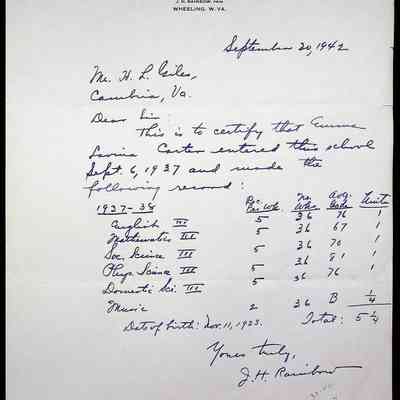 J. H. RAINBOW, PRIN.
WHEELING, W. VA.
September 20, 1942
Mr. H. L. Giles,
Cambria, Va.
Dear Sir:
This is to certify that Emma
Lavina Carter entered this school
Sept. 6, 1937 and made the
following record:
1937-38 Rec. Per Wk. No. Wks. Avg. Grade Units
English III 5 36 76 1
Mathematics III 5 36 67 1
Soc. Science III 5 36 70 1
Phys. Science III 5 36 81 1
Domestic Sci. III 5 36 76 1
Music 2 36 B 1/4
Date of birth: Nov. 11, 1923. Total: 5 1/4
Yours truly,
J. H. Rainbow